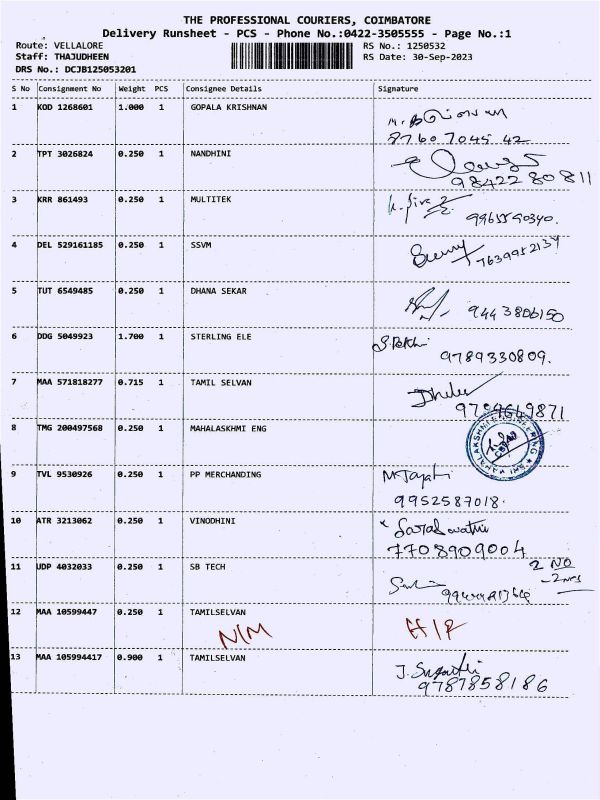 THE PROFESSIONAL COURIERS, COIMBATORE
Delivery Runsheet - PCS - Phone No.:0422-3505555 - Page No.:1
Route: VELLALORE RS No.: 1250532
Staff: THAJUDHEEN RS Date: 30-Sep-2023
DRS No.: DCJB125053201
S No Consignment No Weight PCS Consignee Details Signature
1 KOD 1268601 1.000 1 GOPALA KRISHNAN
87607045 42
2 TPT 3026824 0.250 1 NANDHINI
98422 80811
3 KRR 861493 0.250 1 MULTITEK
9965590340.
4 DEL 529161185 0.250 1 SSVM
7639952137
5 TUT 6549485 0.250 1 DHANA SEKAR
9443806150
6 DDG 5049923 1.700 1 STERLING ELE
9789330809.
7 MAA 571818277 0.715 1 TAMIL SELVAN
8 TMG 200497568 0.250 1 MAHALASKHMI ENG
9 TVL 9530926 0.250 1 PP MERCHANDING
9952587018.
10 ATR 3213062 0.250 1 VINODHINI
Saraswathi
7708909004
11 UDP 4032033 0.250 1 SB TECH 2 NO
12 MAA 10599447 0.250 1 TAMILSELVAN
N/M
13 MAA 105994417 0.900 1 TAMILSELVAN
9787858186